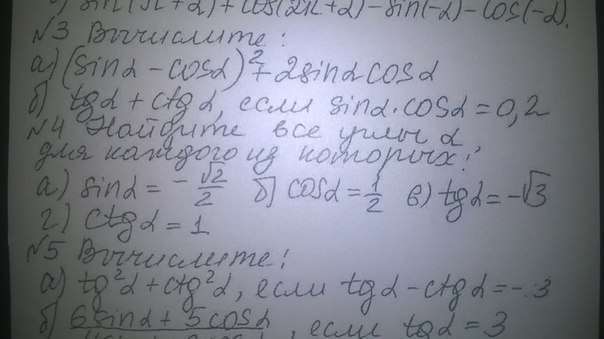 sin(π+α)+cos(2π+α)-sin(-α)-cos(-α).
№3 Вычислите:
а) (sinα-cosα)²+2sinαcosα
б) tgα+ctgα, если sinα·cosα=0,2
№4 Найдите все углы α
для каждого из которых:
а) sinα=-√2/2 б) cosα=1/2 в) tgα=-√3
г) ctgα=1
№5 Вычислите:
а) tg²α+ctg²α, если tgα-ctgα=-3
б) 6sinα+5cosα, если tgα=3